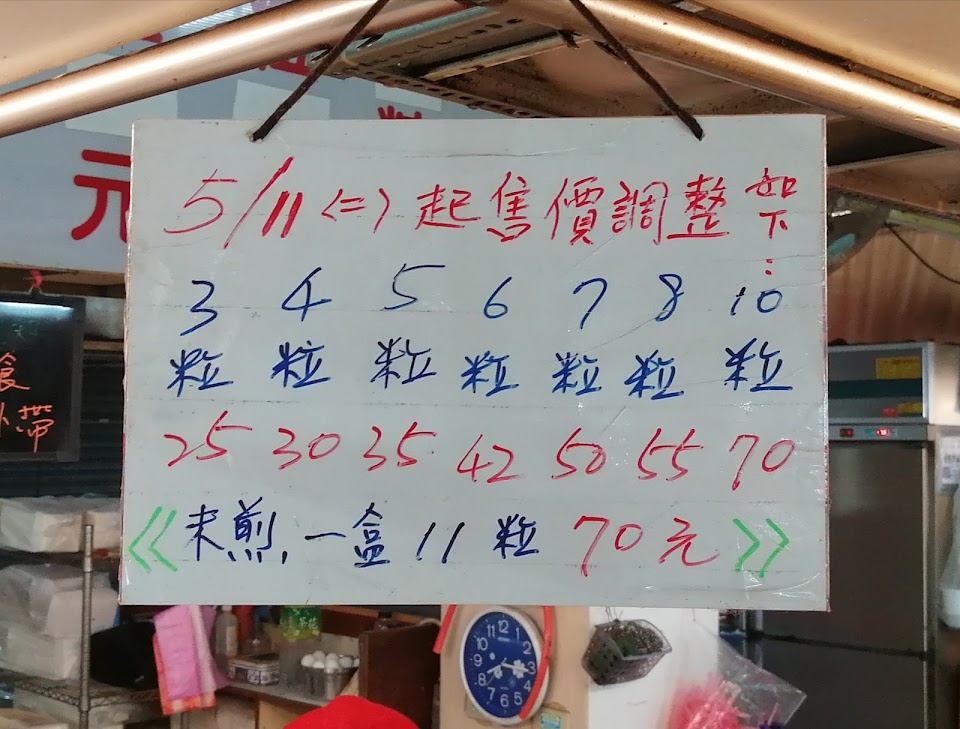 5/11 (二) 起售價調整如下：
3 4 5 6 7 8 10
粒 粒 粒 粒 粒 粒 粒
25 30 35 42 50 55 70
《未煎,一盒 11 粒 70元》
元
食
外帶
茶花
12 1 2 3 4 5 6 7 8 9 10 11